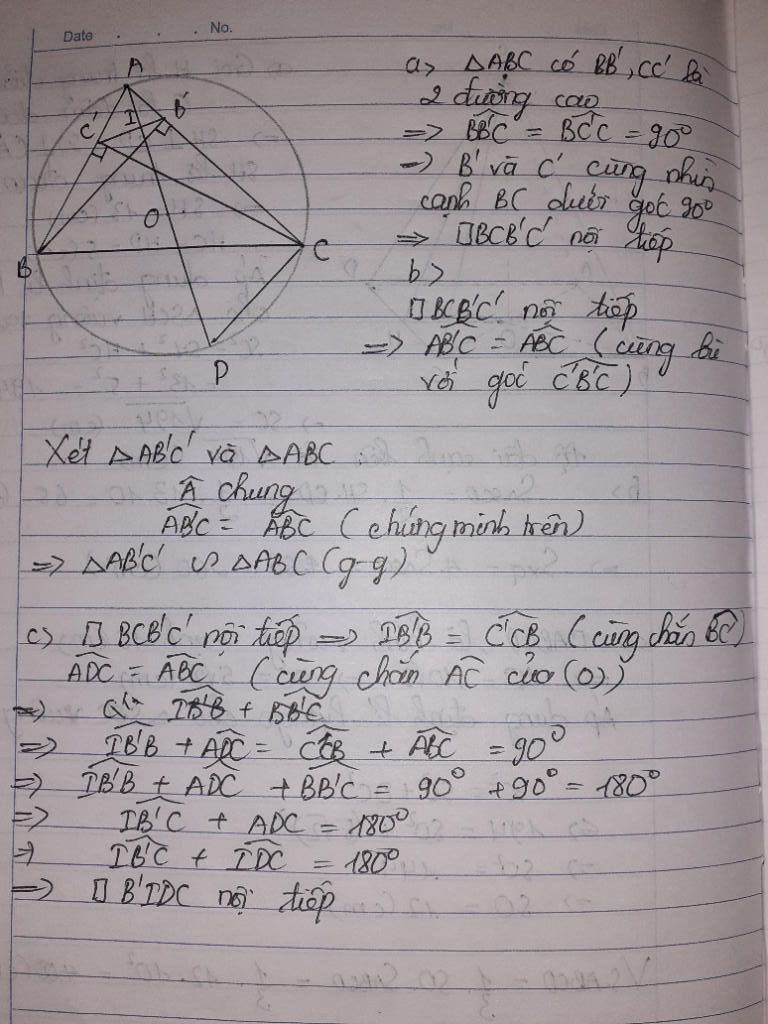 Date . . . No.
A
I
B'
C'
O
B
C
D
a> △ABC có BB', CC' là
2 đường cao
=> BB'C = BC'C = 90°
=> B' và C' cùng nhìn
cạnh BC dưới góc 90°
=> □BCB'C' nội tiếp
b>
□BCB'C' nội tiếp
=> AB'C' = ABC (cùng bù
với góc C'B'C)
Xét △AB'C' và △ABC
Â chung
AB'C' = ABC (chứng minh trên)
=> △AB'C' ∽ △ABC (g-g)
c> □ BCB'C' nội tiếp => IB'B = C'CB (cùng chắn BC')
ADC = ABC (cùng chắn AC của (O))
=> IB'B + BB'C
=> IB'B + ADC = C'CB + ABC = 90°
=> IB'B + ADC + BB'C = 90° + 90° = 180°
=> IB'C + ADC = 180°
=> IB'C + IDC = 180°
=> □ B'IDC nội tiếp